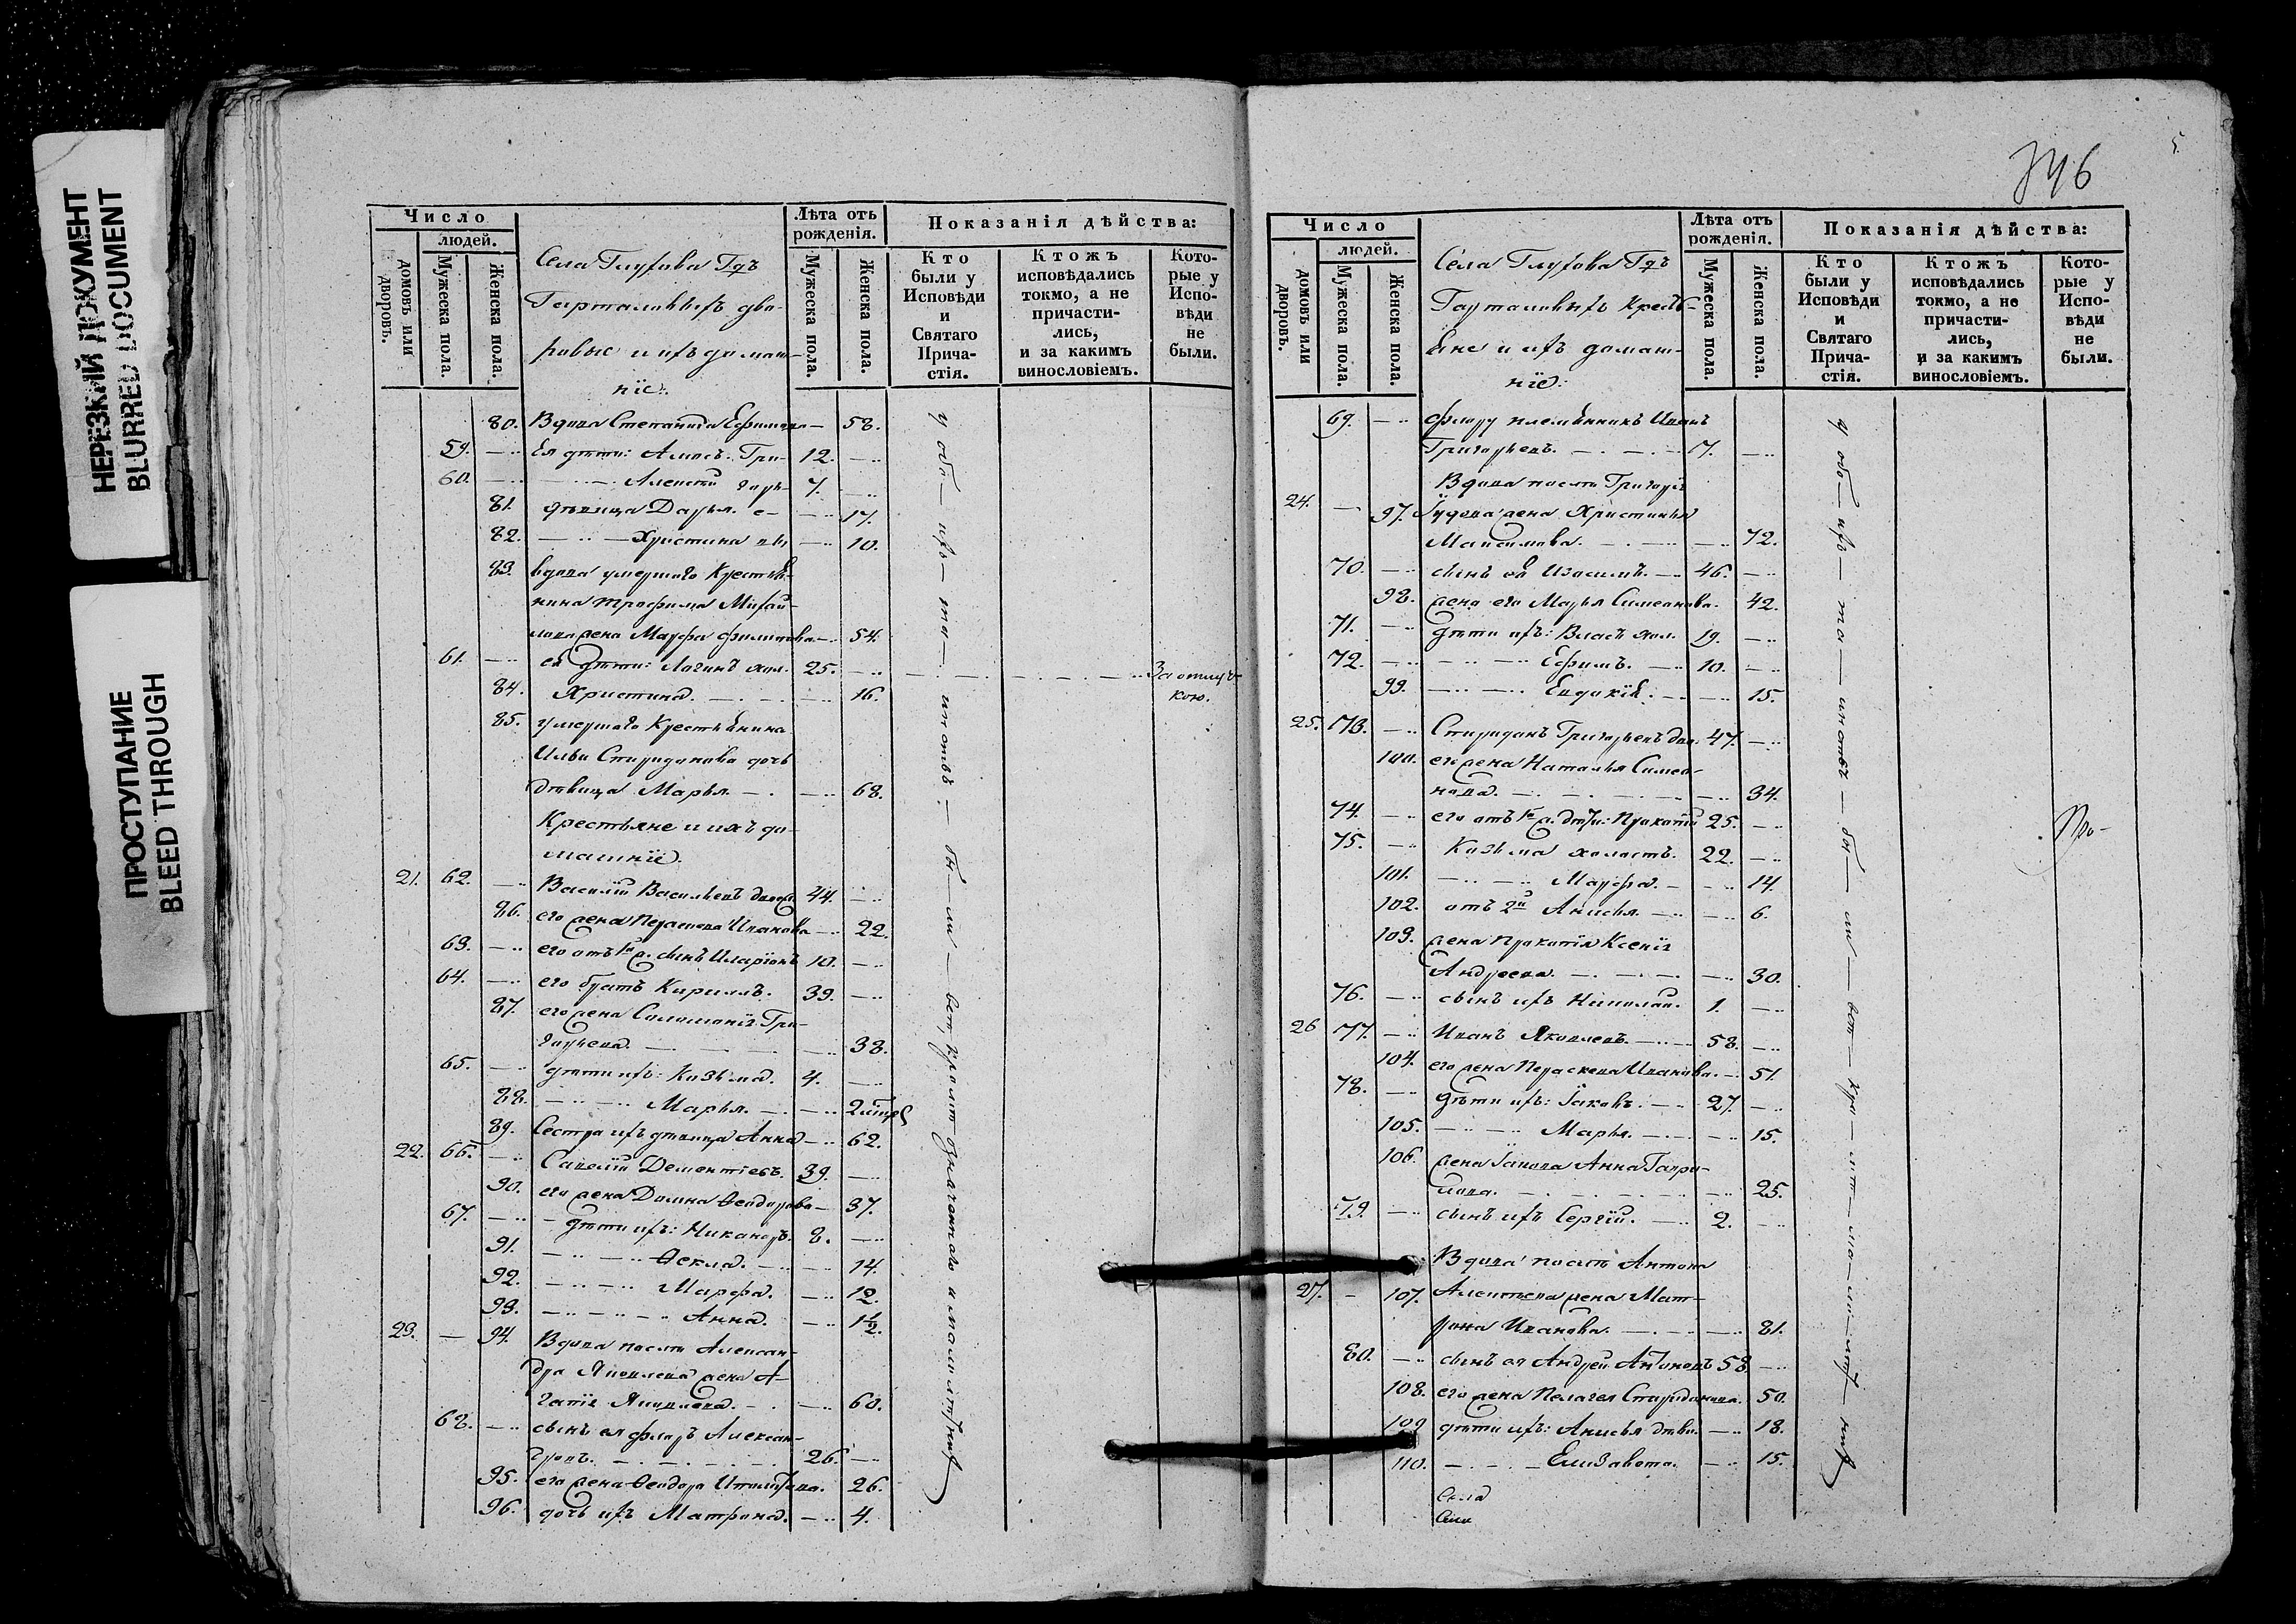 НЕРЕЗКИЙ ДОКУМЕНТ
BLURRED DOCUMENT
ПРОСТУПАНИЕ
BLEED THROUGH
Число
людей.
домовъ или дворовъ.
Мужеска пола.
Женска пола.
Села Глухова Гдъ
дво-
ровые и ихъ домаш-
нїе:
Лѣта отъ рожденія.
Мужеска пола.
Женска пола.
Показанія дѣйства:
Кто были у Исповѣди и Святаго Прича-стія.
Ктожъ исповѣдались токмо, а не причасти-лись, и за какимъ винословіемъ.
Кото-рые у Испо-вѣди не были.
80. Вдова Степанида Ефимова — 58.
59. — Ея дѣти: Амосъ. Гри- 12. —
60. — Алексѣй горь- 7. —
81. дѣвица Дарья. е- — 17.
82. — Христина вы — 10.
83. вдова умершаго Крестья-
нина Трофима Михай-
лова жена Марфа Филипова — 54.
61. — еѣ дѣти: Логинъ хол. 25. — За отлуч-
кою.
84. Христина. — 16.
85. умершаго Крестьянина
Ильи Спиридонова дочь
дѣвица Марья. — 68.
Крестьяне и ихъ до-
машнїе.
21. 62. — Василїй Васильевъ вдовъ 44. —
86. его жена Параскева Иванова — 22.
63. — его отъ 1й ж. сынъ Иларїонъ 10. —
64. — его братъ Кирилъ. 39. —
87. его жена Соломонїя Гри-
горьева. — 38.
65. — дѣти ихъ: Козьма. 4. —
88. — Марья. — 2
89. Сестра ихъ дѣвица Анна — 62.
22. 66. — Савелїй Дементїевъ. 39. —
90. его жена Домна Ѳеодорова — 37.
67. — дѣти ихъ: Никаноръ. 8. —
91. — Ѳекла. — 14.
92. — Марфа. — 12.
93. — Анна. — 1½.
23. — 94. Вдова послѣ Алексан-
дра Яковлева жена А-
гапїя Яковлева. — 60.
68. — сынъ ея Флоръ Алексан-
дровъ. — 26. —
95. его жена Ѳеодора Ипполитова. 26.
96. дочь ихъ Матрона. — 4.
у обо- ихъ- то- — бы — ли — вст, кромѣ означеннаго и малолѣтныхъ
746
5.
Число
людей.
домовъ или дворовъ.
Мужеска пола.
Женска пола.
Села Глухова Гдъ
Кресть-
яне и ихъ домаш-
нїе:
Лѣта отъ рожденія.
Мужеска пола.
Женска пола.
Показанія дѣйства:
Кто были у Исповѣди и Святаго Прича-стія.
Ктожъ исповѣдались токмо, а не причасти-лись, и за какимъ винословіемъ.
Кото-рые у Испо-вѣди не были.
69. — Флору племянникъ Иванъ
Григорьевъ. — 7. —
Вдова послѣ Григорїя
24. — 97. жена Христинья
Максимова. — 72.
70. — сынъ ея Изосимъ. — 46. —
98. жена его Марья Симеонова. 42.
71. — дѣти ихъ: Власъ хол. 19. —
72. — Ефимъ. — 10. —
99. — Евдокїя. — 15.
25. 73. — Спиридонъ Григорьевъ вдов. 47. —
100. его жена Наталья Симео-
нова. — 34.
74. — его отъ 1й ж. дѣти: Прокопїй 25. —
75. — Козьма холостъ. 22. —
101. — Марфа. — 14.
102. отъ 2й Анисья. — 6.
103. жена Прокопїя Ксенїя
Андреева. — 30.
76. — сынъ ихъ Николай. 1. —
26 77. — Иванъ Яковлевъ. — 58. —
104. его жена Параскева Иванова. — 51.
78. — дѣти ихъ: Їаковъ. — 27. —
105. — Марья. — 15.
106. жена Їакова Анна Гаври-
лова. — 25.
79. — сынъ ихъ Сергїй. — 2. —
Вдова послѣ Антона
27. — 107. Алексѣева жена Мат-
рона Иванова. — 81.
80. — сынъ ея Андрей Антоновъ 58 —
108. его жена Пелагея Спиридонова. 50.
109 дѣти ихъ: Анисья дѣви. — 18.
110. — Елизавета. — 15.
Села
у обо- ихъ — то — бы — ли — вст — кро — мѣ — ма — ло — лѣт — ныхъ
Про-